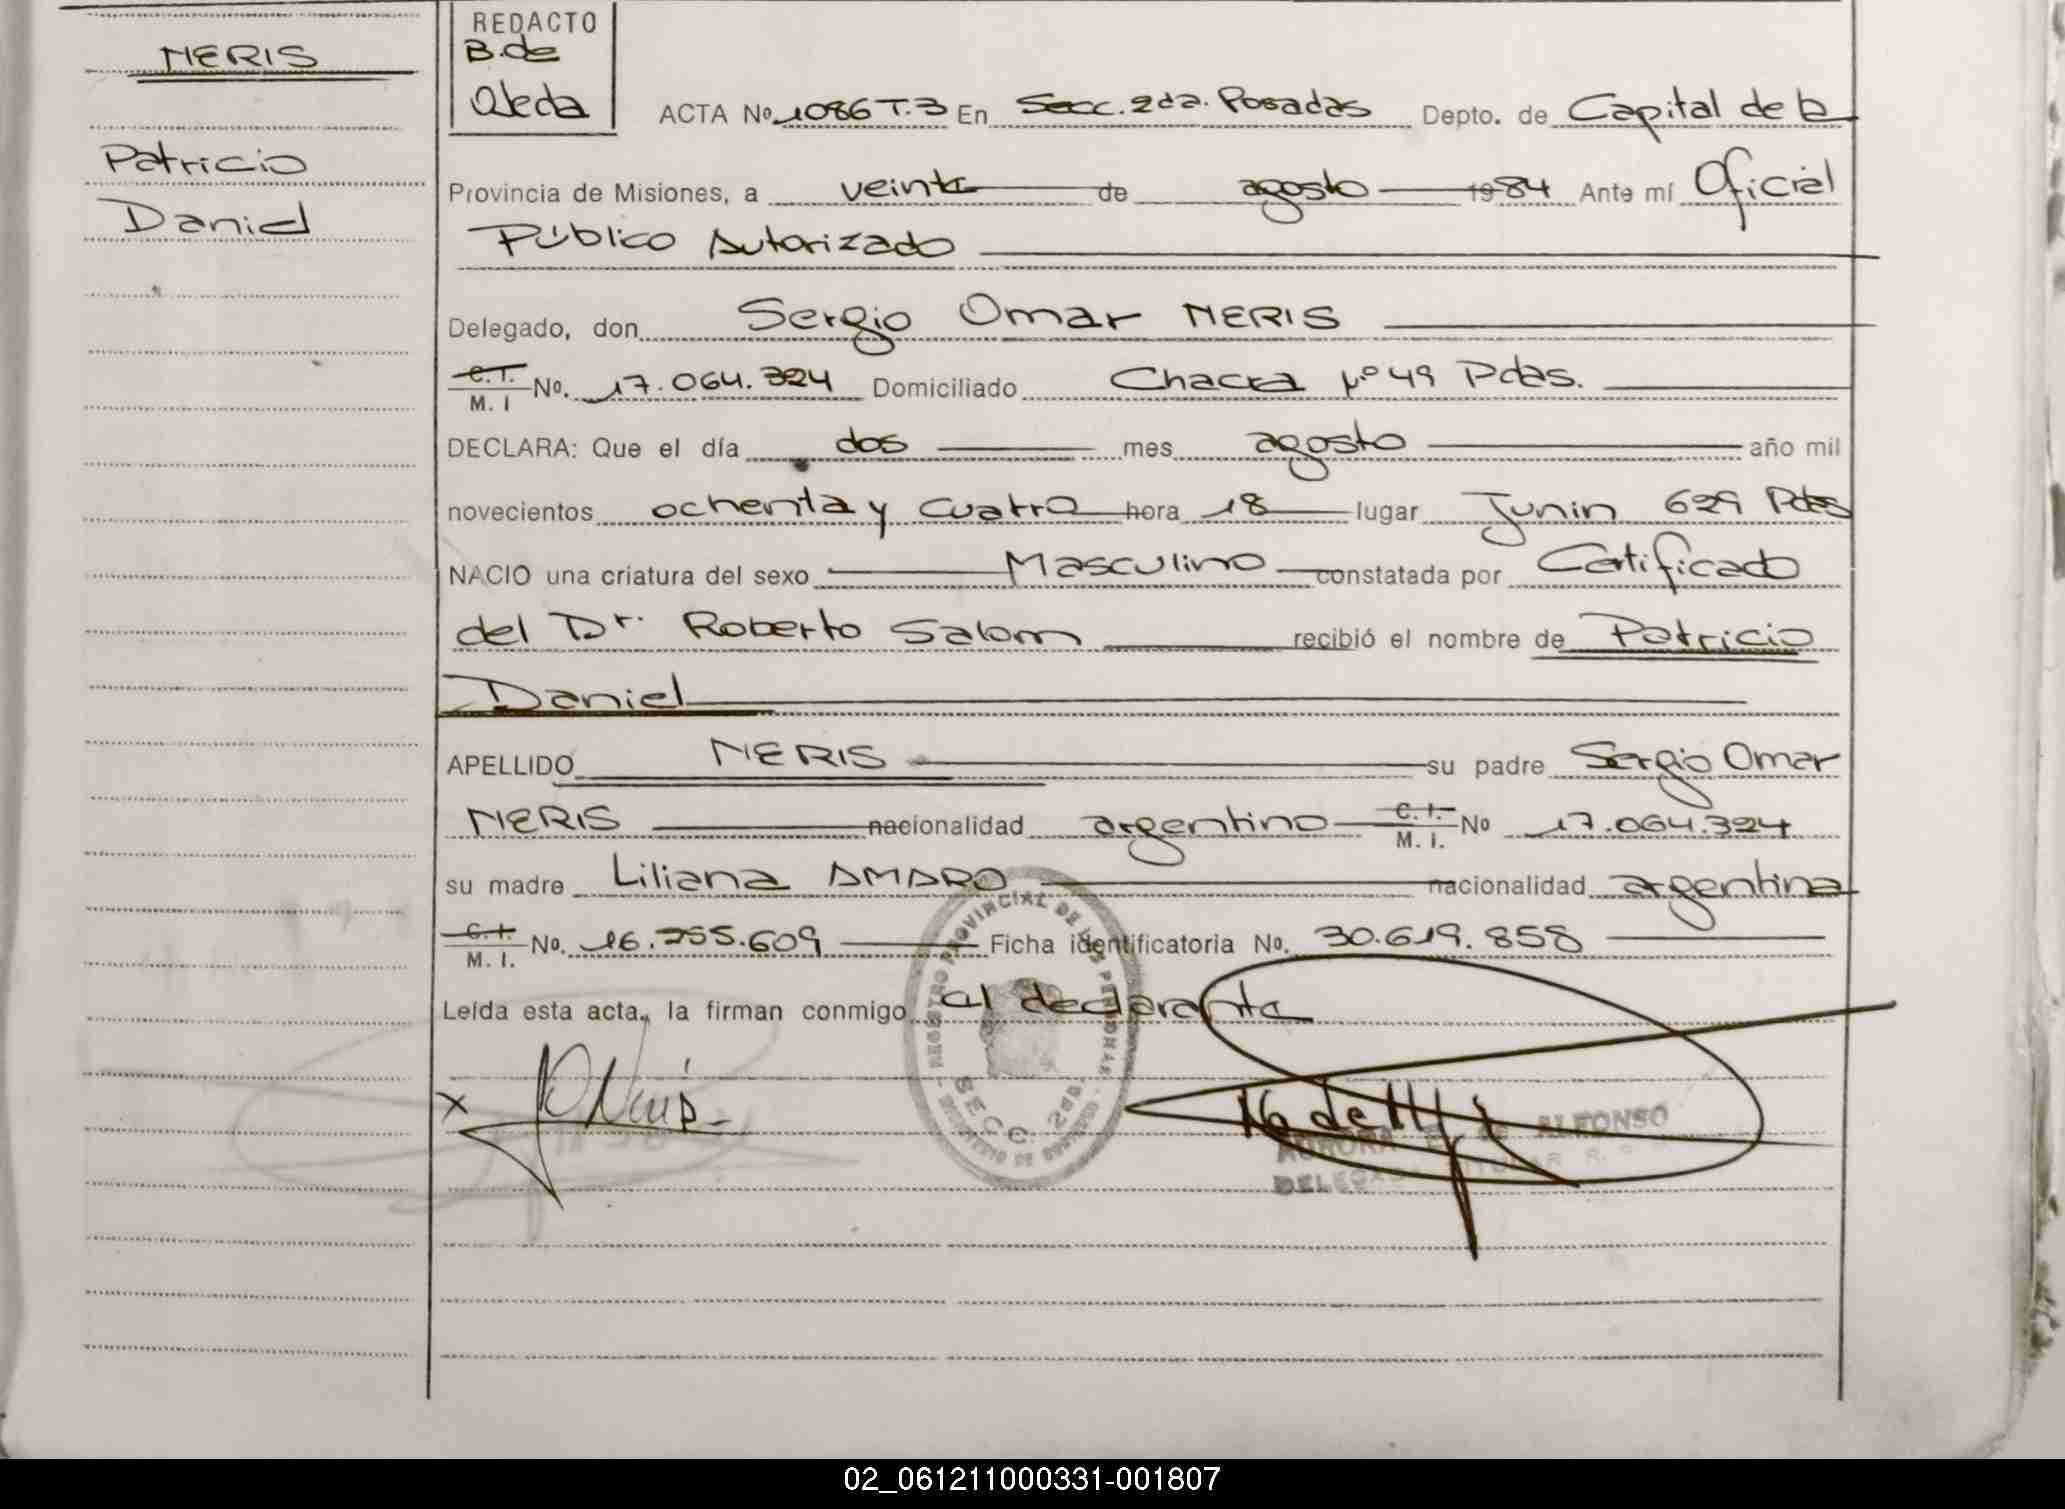 NERIS
Patricio
Daniel
REDACTO
B. de
Ojeda
ACTA Nº 1086 T.3 En Secc. 2da. Posadas Depto. de Capital de la
Provincia de Misiones, a veinte de agosto 1984 Ante mí Oficial
Público Autorizado
Delegado, don Sergio Omar NERIS
C.I. M. I No. 17.064.324 Domiciliado Chacra Nº 49 Pdas.
DECLARA: Que el día dos mes agosto año mil
novecientos ochenta y cuatro hora 18 lugar Junin 629 Pdas
NACIO una criatura del sexo Masculino constatada por Certificado
del Dr. Roberto Salom recibió el nombre de Patricio
Daniel
APELLIDO NERIS su padre Sergio Omar
NERIS nacionalidad argentino C. I. M. I. No 17.064.324
su madre Liliana AMARO nacionalidad argentina
C. I. M. I. No. 16.255.609 Ficha identificatoria No. 30.619.858
Leída esta acta, la firman conmigo el declarante
REGISTRO PROVINCIAL DE LAS PERSONAS
SECC. 2da
MINISTERIO DE GOBIERNO
x
AURORA DE ALFONSO
DELEGADA TITULAR R.
02_061211000331-001807